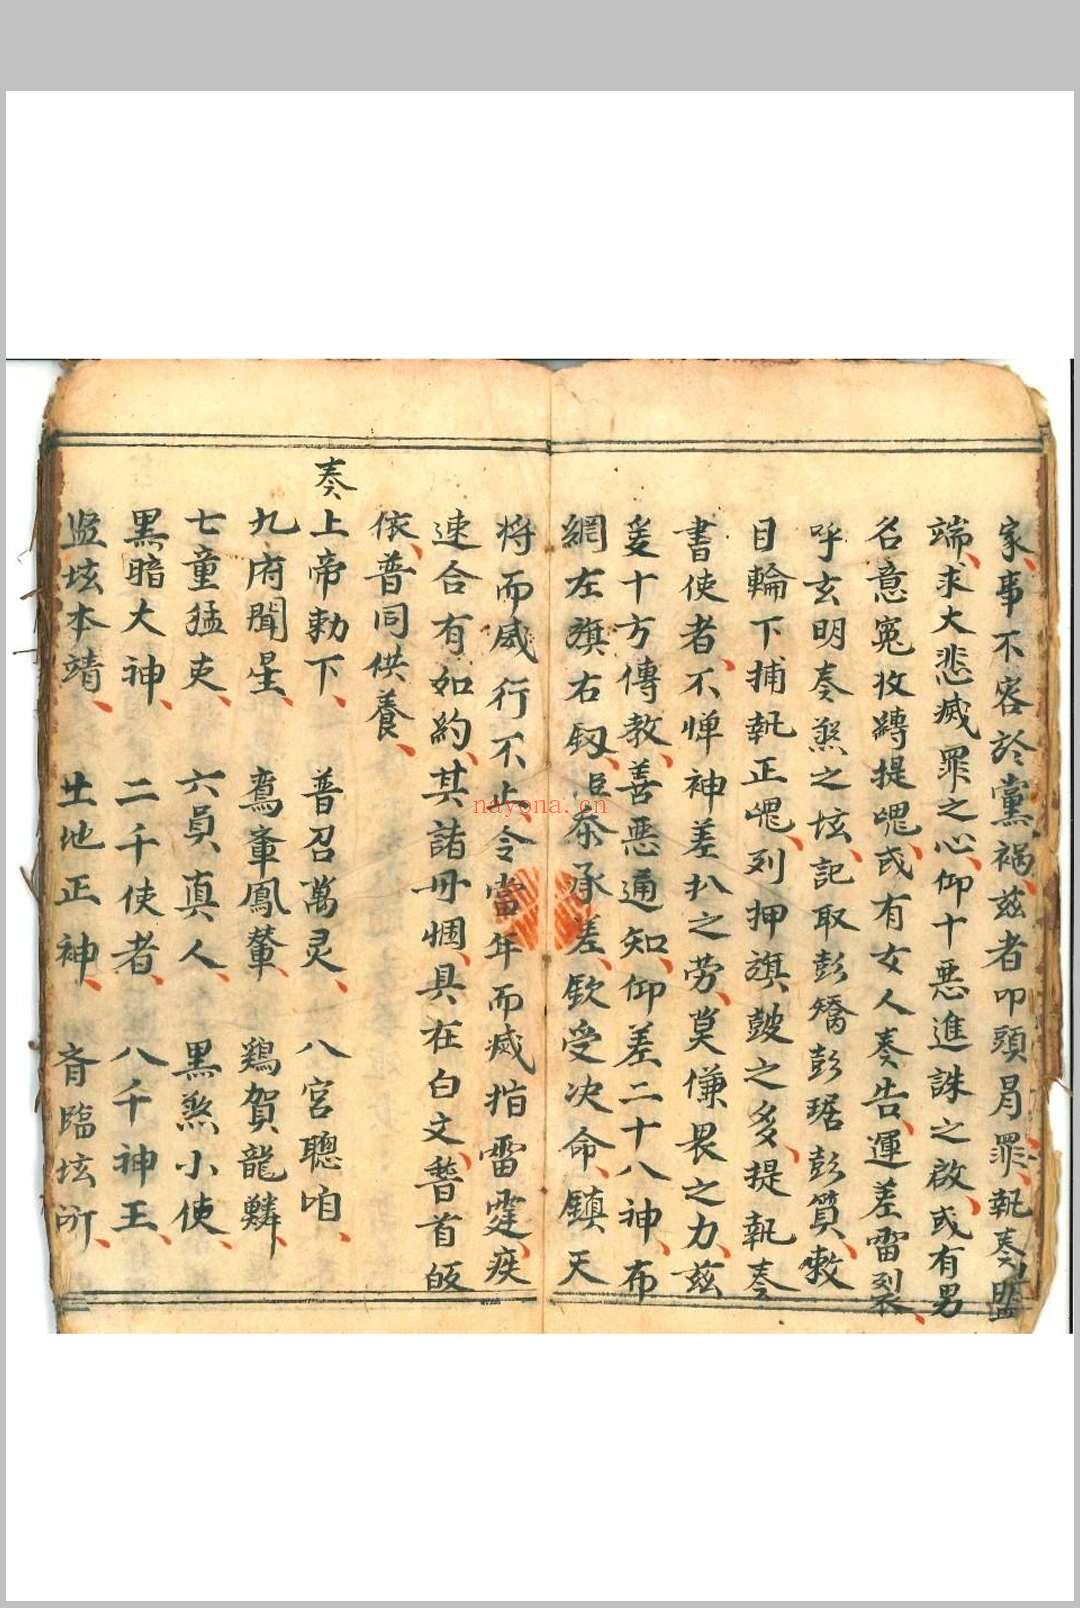 家、事不容於黨禍、茲者叩頭肙罪、執奏盟
端、求大悲滅罪之心、仰十惡進誅之啟、或有男
名意冤收轉提鬼、或有女人奏告、運差雷裂、
呼玄明奏煞之垓、記取彭矯彭琚彭質、敕
目輪下捕執正鬼、列押旗皷之多、提執奏
書使者、不憚神差扒之劳、莫傔畏之力、茲
爰十方傳教、善惡通知、仰差二十八神、布
網左旗右釼、臣忝承差、欽受决命、鎮天
将而威行不止、令當年而滅指雷霆、疾
速合有如約、其諸毌悃、具在白文、謦首皈
依、普同供養、
奏
上帝勅下、 普召萬灵、 八宮聰咱、
九府聞星、 鸞軬鳳輦、 鶏賀龍鱗、
七童猛吏、 六員真人、 黒煞小使、
黒暗大神、 二千使者、 八千神王、
监垓本靖、 土地正神、 斉臨垓所、
nayona.cn